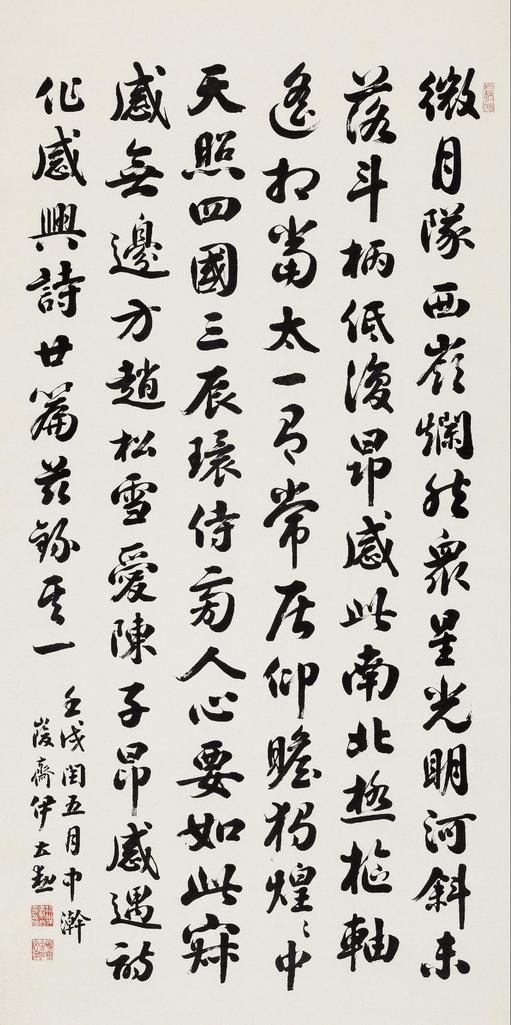 微月隊西嶺爛然衆星光明河斜未
落斗柄低復昂感此南北極樞軸
遙相當太一有常居仰瞻獨煌〻中
天照四國三辰環侍旁人心要如此寂
感無邊方趙松雪愛陳子昂感遇詩
作感興詩廿篇茲錄其一
壬戌閏五月中澣
峻齋伊立勳